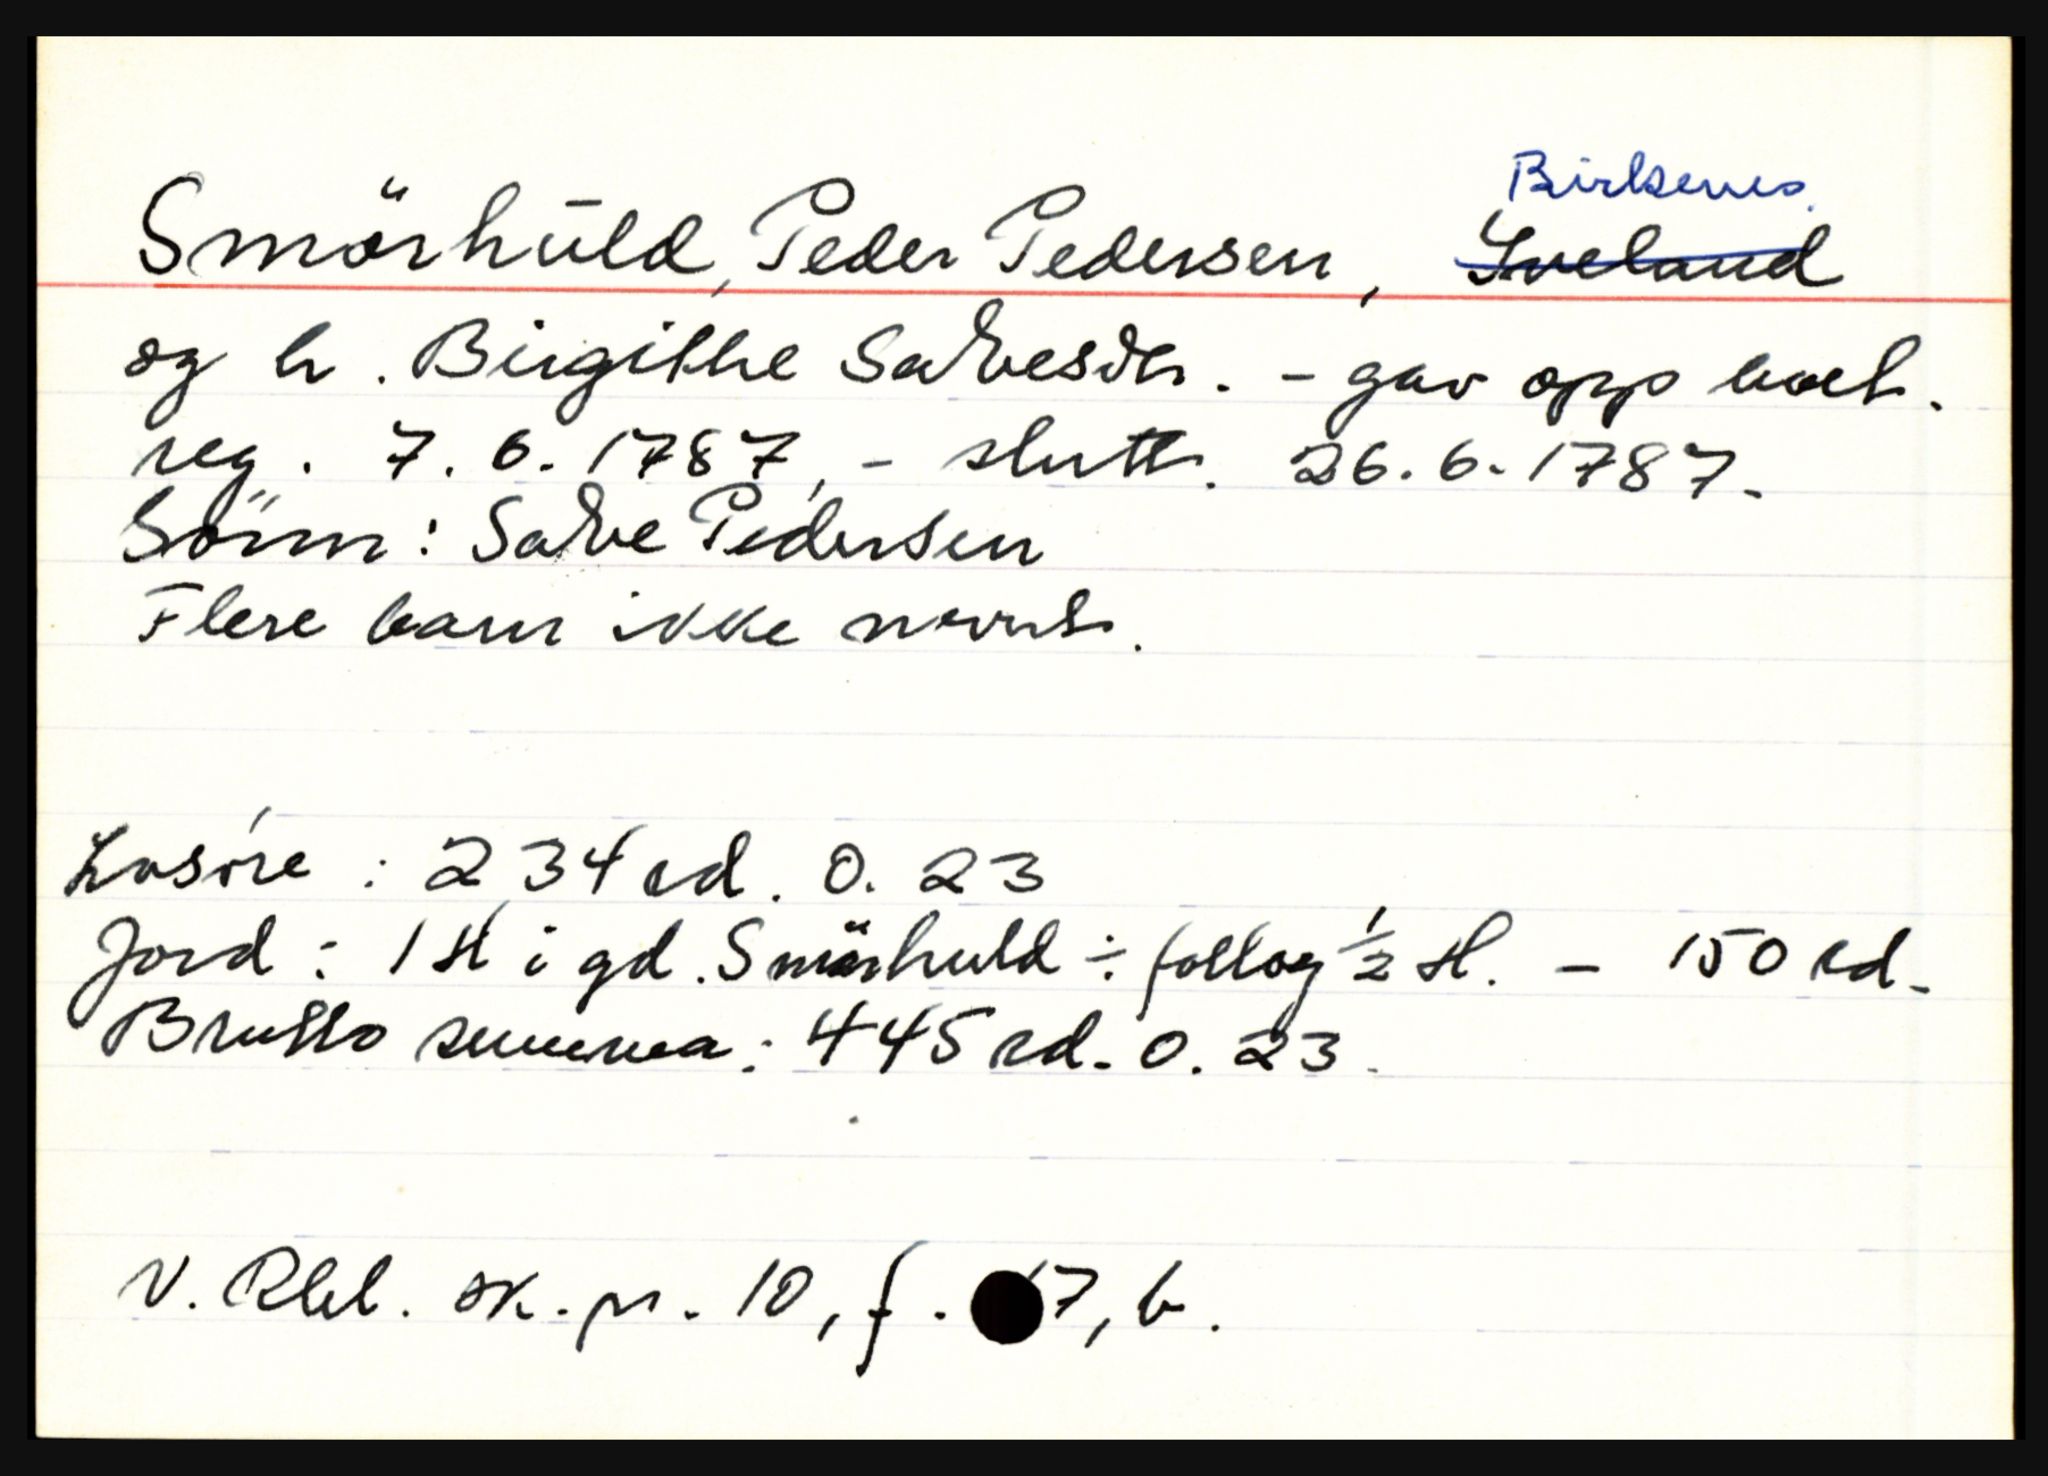 Birkenes
Smörhüld, Peder Pedersen, Iveland
og h. Birgithe Salvesdtr. - gav opp boet.
reg. 7.6.1787, - slutt. 26.6.1787.
Sönn: Salve Pedersen
Flere barn ikke nevnt.
Losøre: 234 rd. 0. 23
Jord: 1 H i gd. Smörhuld ÷ 1/2 H. - 150 rd.
Brutto summa: 445 rd. 0. 23.
V. Rbl. sk.pr. 10, f. 7, b.